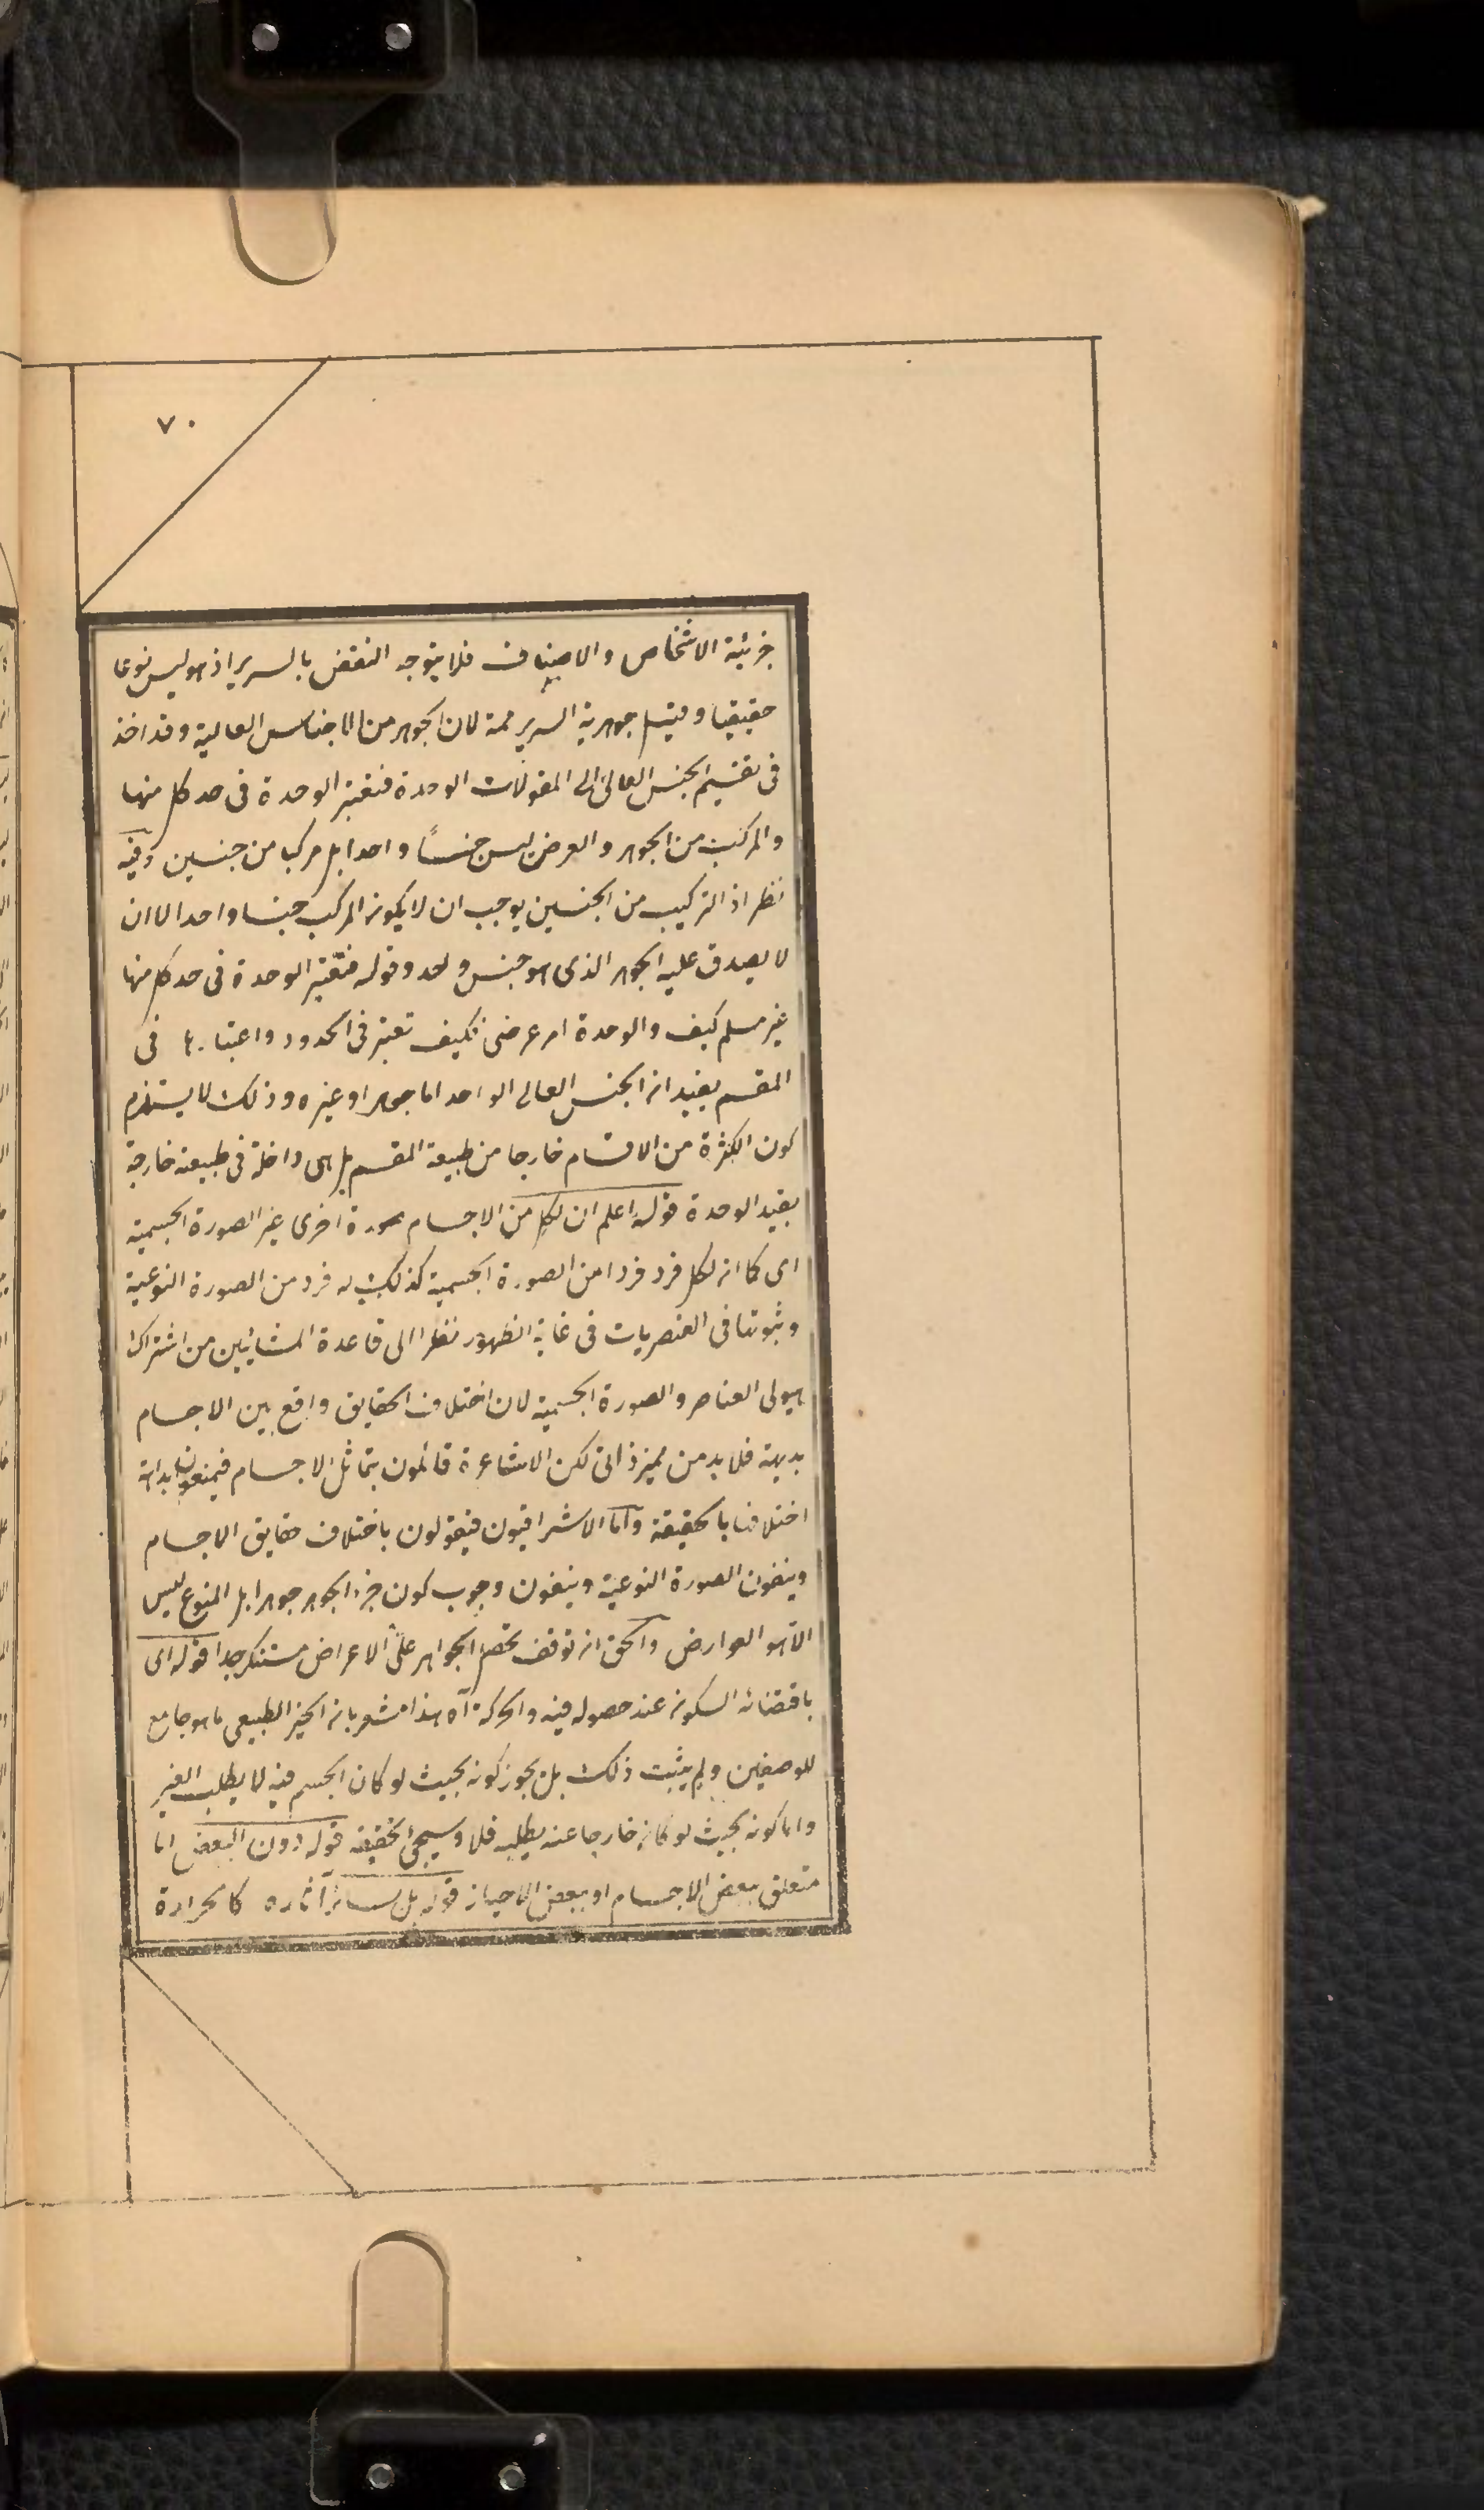 ٧٠
جزئية الاشخاص والاصناف فلا يتوجه النقض بالسرير اذ هو ليس نوعا
حقيقيا وقيل جوهرية السرير ممة لان الجوهر من الاجناس العالية وقد اخذ
فى تقسيم الجنس العالى الى المقولات الوحدة فتعتبر الوحدة فى حد كل منها
والمركب من الجوهر والعرض ليس جنسًا واحدا بل مركب من جنسين وفيه
نظر اذ التركيب من الجنسين يوجب ان لا يكون المركب جنسا واحدا لا ان
لا يصدق عليه الجوهر الذى هو جنس واحد وقوله فتعتبر الوحدة فى حد كل منها
غير مسلم كيف والوحدة امر عرضى فكيف تعتبر فى الحدود واعتبارها فى
المقسم يفيد ان الجنس العالى الواحد اما جوهر او غيره وذلك لا يستلزم
كون الكثرة من الاقسام خارجا من طبيعة المقسم بل هى داخلة فى طبيعته خارجة
بقيد الوحدة قوله اعلم ان لكل من الاجسام صورة اخرى غير الصورة الجسمية
اى كما ان لكل فرد فردا من الصورة الجسمية كذلك له فرد من الصورة النوعية
وثبوتها فى العنصريات فى غاية الظهور نظرا الى قاعدة المشائين من اشتراك
هيولى العناصر والصورة الجسمية لان اختلاف الحقايق واقع بين الاجسام
بديهة فلا بد من مميز ذاتى لكن الاشاعرة قائلون بتماثل الاجسام فيمنعون بداهة
اختلافها بالحقيقة واما الاشراقيون فيقولون باختلاف حقايق الاجسام
وينفون الصورة النوعية وينفون وجوب كون جزء الجوهر جوهرا بل المنوع ليس
الا هو العوارض والحق ان توقف تحصل الجواهر على الاعراض مستنكر جدا قوله اى
باقتضائه السكون عند حصوله فيه والحركة آه هذا مشعر بان الحيز الطبيعى ما هو جامع
للوصفين ولم يثبت ذلك بل يجوز كونه بحيث لو كان الجسم فيه لا يطلب الغير
واما كونه بحيث لو كان خارجا عنه يطلبه فلا وسيجئ تحقيقه قوله دون البعض اما
متعلق ببعض الاجسام او ببعض الاحياز قوله بل سائر آثاره كالحرارة